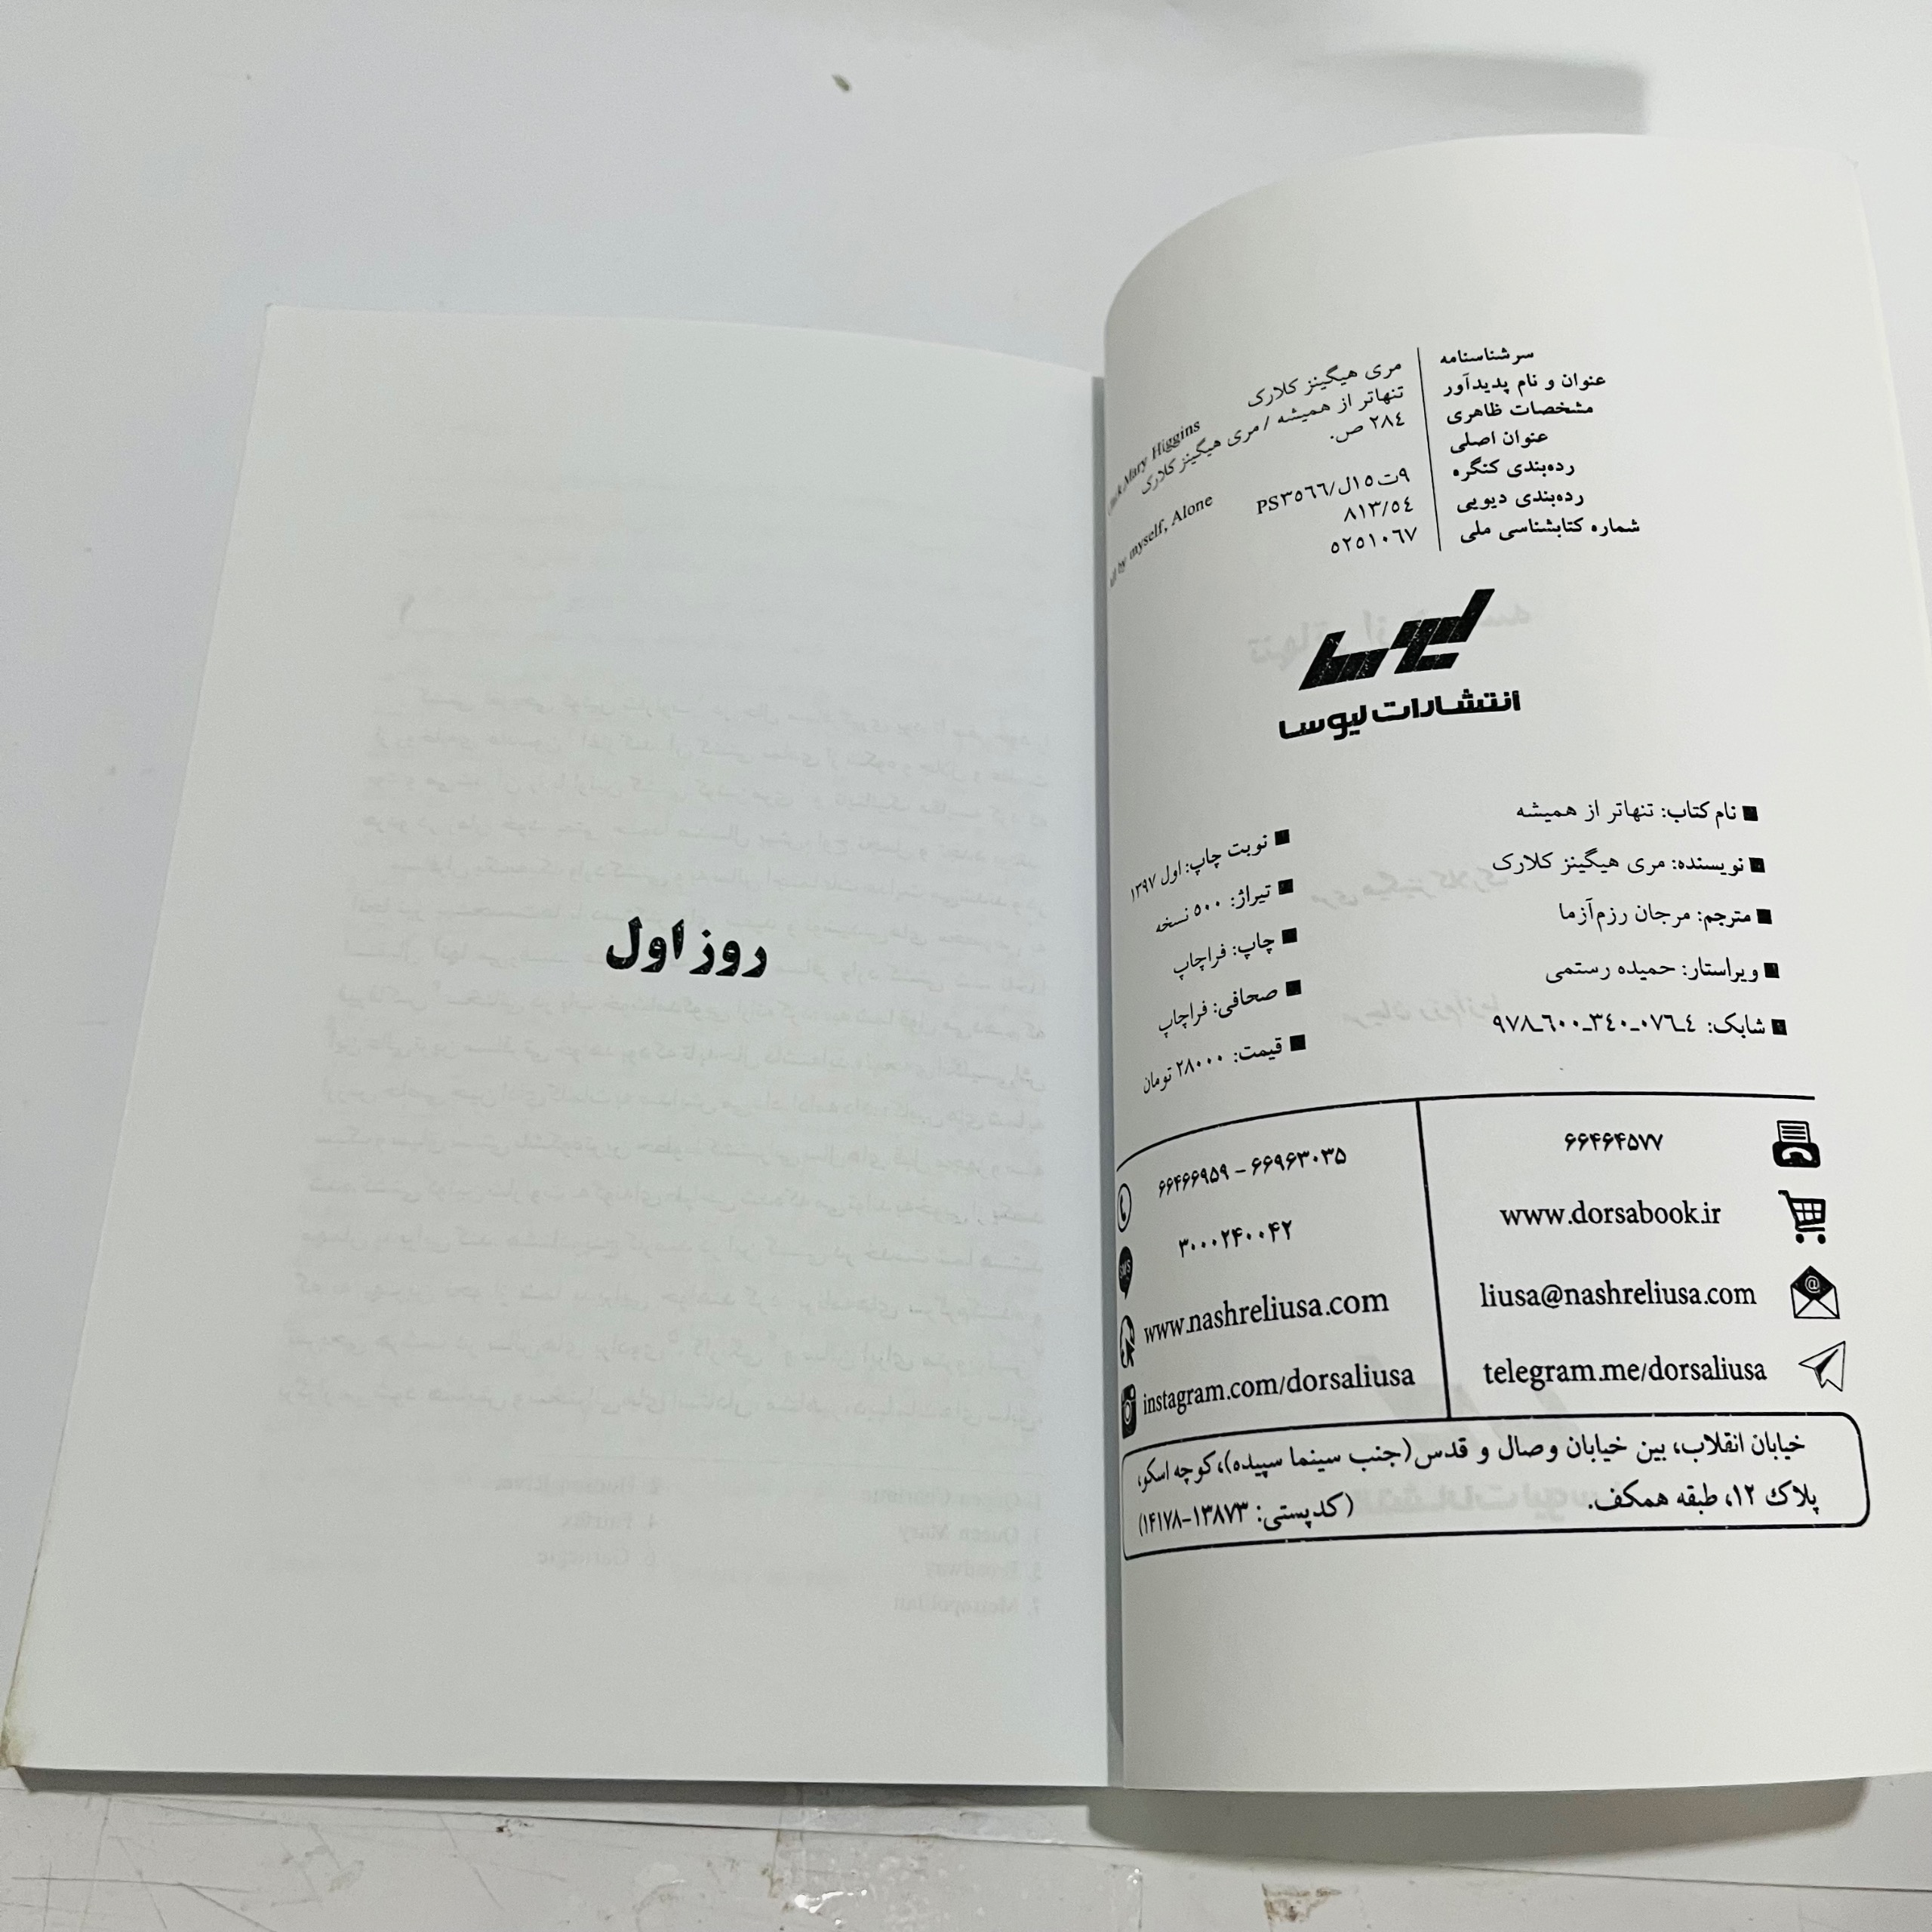 سرشناسنامه
مری هیگینز کلارک Mary Higgins
عنوان و نام پدیدآور
تنهاتر از همیشه / مری هیگینز کلارک
مشخصات ظاهری
٢٨٤ ص.
عنوان اصلی
by myself, Alone
رده‌بندی کنگره
PS٣٥٦٦/ل١٥ت٩
رده‌بندی دیویی
٨١٣/٥٤
شماره کتابشناسی ملی
٥٢٥١٠٦٧
لیوسا
انتشارات لیوسا
■ نام کتاب: تنهاتر از همیشه
■ نویسنده: مری هیگینز کلارک
■ مترجم: مرجان رزم‌آزما
■ ویراستار: حمیده رستمی
■ شابک: ٤ـ٠٧٦ـ٣٤٠ـ٦٠٠ـ٩٧٨
■ نوبت چاپ: اول ١٣٩٧
■ تیراژ: ٥٠٠ نسخه
■ چاپ: فراچاپ
■ صحافی: فراچاپ
■ قیمت: ٢٨٠٠٠ تومان
۶۶۴۶۴۵۷۷
www.dorsabook.ir
liusa@nashreliusa.com
telegram.me/dorsaliusa
۶۶۴۶۶۹۵۹ – ۶۶۹۶۳۰۳۵
SMS
۳۰۰۰۲۴۰۰۴۲
www.nashreliusa.com
instagram.com/dorsaliusa
خیابان انقلاب، بین خیابان وصال و قدس (جنب سینما سپیده)، کوچه اسکو،
پلاک ۱۲، طبقه همکف. (کدپستی: ۱۳۸۷۳–۱۴۱۷۸)
روز اول